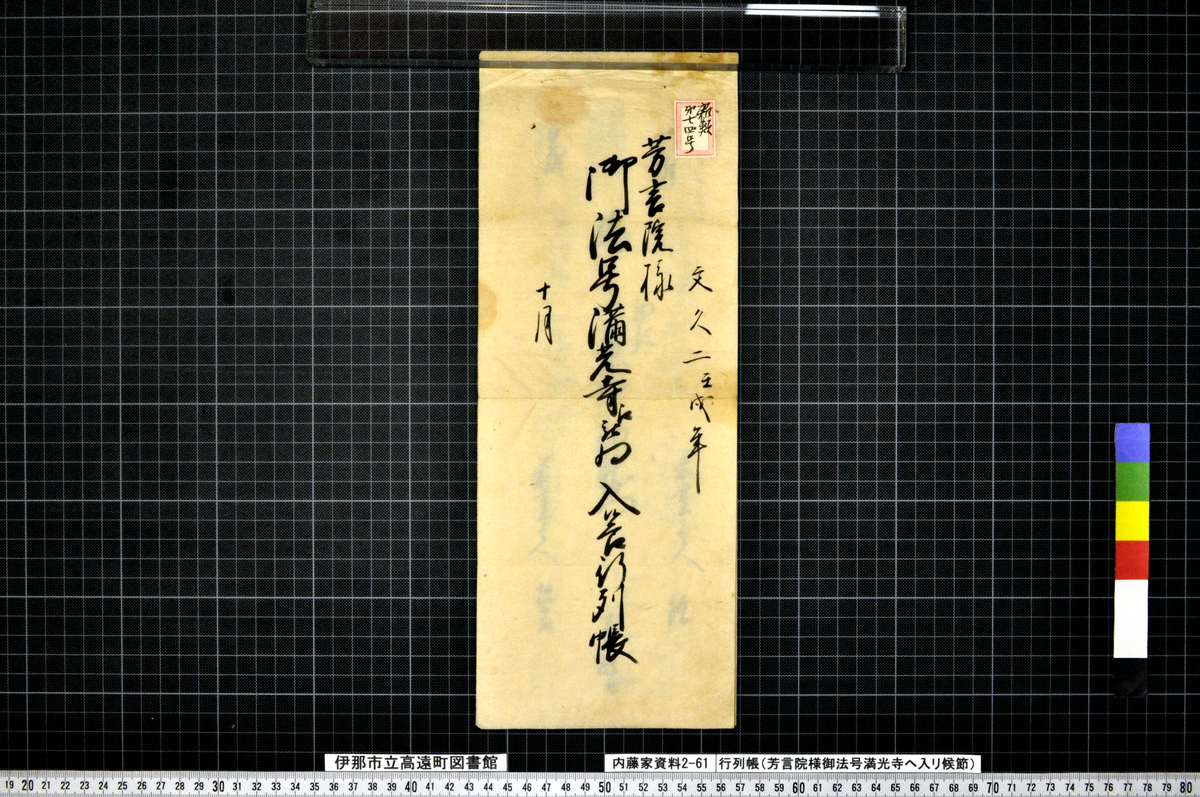 第七四号
文久二壬戌年
芳言院様
御法号満光寺江被為入行列帳
十月
伊那市立高遠町図書館
内藤家資料2-61 行列帳(芳言院様御法号満光寺へ入り候節)
19 20 21 22 23 24 25 26 27 28 29 30 31 32 33 34 35 36 37 38 39 40 41 42 43 44 45 46 47 48 49 50 51 52 53 54 55 56 57 58 59 60 61 62 63 64 65 66 67 68 69 70 71 72 73 74 75 76 77 78 79 80